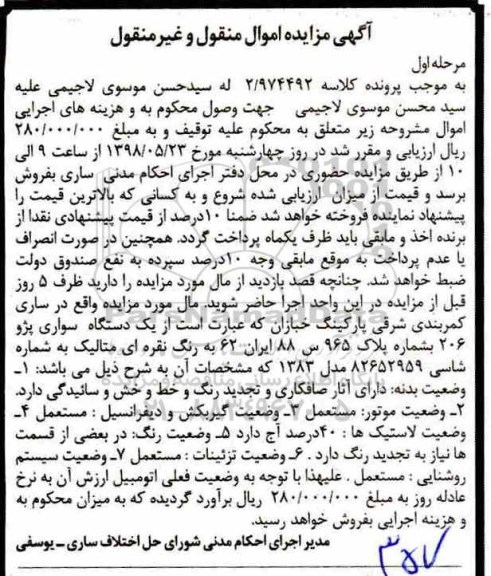 آگهی مزایده اموال منقول و غیرمنقول
مرحله اول
به موجب پرونده کلاسه ۲/۹۷۴۴۹۲ له سیدحسن موسوی لاجیمی علیه
سید محسن موسوی لاجیمی جهت وصول محکوم به و هزینه های اجرایی
اموال مشروحه زیر متعلق به محکوم علیه توقیف و به مبلغ ۲۸۰/۰۰۰/۰۰۰
ریال ارزیابی و مقرر شد در روز چهارشنبه مورخ ۱۳۹۸/۰۵/۲۳ از ساعت ۹ الی
۱۰ از طریق مزایده حضوری در محل دفتر اجرای احکام مدنی ساری بفروش
برسد و قیمت از میزان ارزیابی شده شروع و به کسانی که بالاترین قیمت را
پیشنهاد نماینده فروخته خواهد شد ضمنا ۱۰درصد از قیمت پیشنهادی نقدا از
برنده اخذ و مابقی باید ظرف یکماه پرداخت گردد. همچنین در صورت انصراف
یا عدم پرداخت به موقع مابقی وجه ۱۰درصد سپرده به نفع صندوق دولت
ضبط خواهد شد. چنانچه قصد بازدید از مال مورد مزایده را دارید ظرف ۵ روز
قبل از مزایده در این واحد اجرا حاضر شوید. مال مورد مزایده واقع در ساری
کمربندی شرقی پارکینگ خبازان که عبارت است از یک دستگاه سواری پژو
۲۰۶ بشماره پلاک ۹۶۵ س ۸۸ ایران ۶۲ به رنگ نقره ای متالیک به شماره
شاسی ۸۲۶۵۲۹۵۹ مدل ۱۳۸۳ که مشخصات آن به شرح ذیل می باشد: ۱ـ
وضعیت بدنه: دارای آثار صافکاری و تجدید رنگ و خط و خش و سائیدگی دارد.
۲ـ وضعیت موتور: مستعمل ۳ـ وضعیت گیربکس و دیفرانسیل : مستعمل ۴ـ
وضعیت لاستیک ها : ۴۰درصد آج دارد ۵ـ وضعیت رنگ: در بعضی از قسمت
ها نیاز به تجدید رنگ دارد . ۶ـ وضعیت تزئینات : مستعمل ۷ـ وضعیت سیستم
روشنایی : مستعمل . علیهذا با توجه به وضعیت فعلی اتومبیل ارزش آن به نرخ
عادله روز به مبلغ ۲۸۰/۰۰۰/۰۰۰ ریال برآورد گردیده که به میزان محکوم به
و هزینه اجرایی بفروش خواهد رسید.
مدیر اجرای احکام مدنی شورای حل اختلاف ساری ـ یوسفی
ParsNamadData